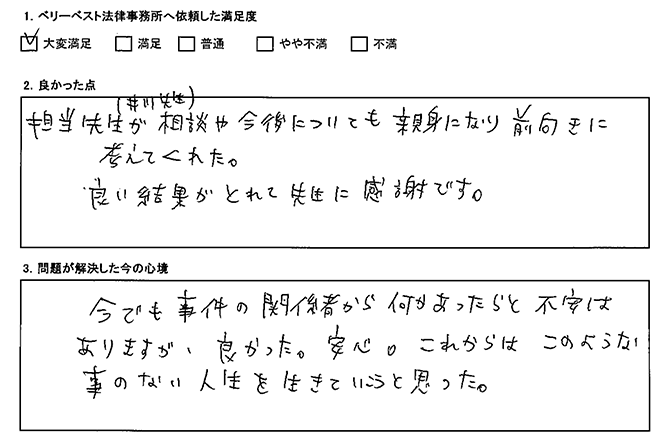 1. ベリーベスト法律事務所へ依頼した満足度
☑ 大変満足 □ 満足 □ 普通 □ やや不満 □ 不満
2. 良かった点
(井川先生)
担当先生が相談や今後についても親身になり前向きに
考えてくれた。
良い結果がとれて先生に感謝です。
3. 問題が解決した今の心境
今でも事件の関係者から何かあったらと不安は
ありますが、良かった。安心。これからはこのようない
事のない人生を生きていこうと思った。